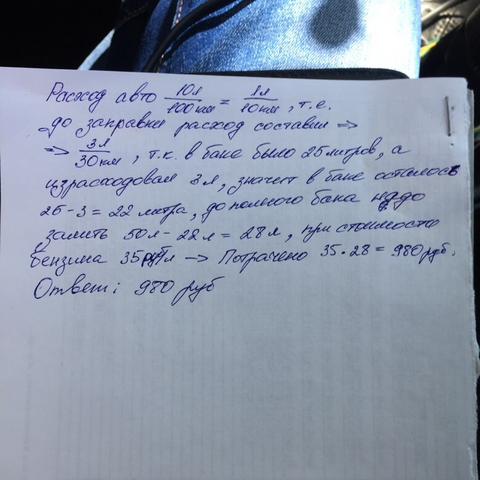 Расход авто 10л/100км = 1л/10км, т.е.
до заправки расход составил =>
=> 3л/30км, т.к. в баке было 25 литров, а
израсходовал 3л, значит в баке осталось
25-3=22 литра, до полного бака надо
залить 50л-22л=28л, при стоимости
бензина 35руб/л → Потрачено 35·28=980руб.
Ответ: 980 руб